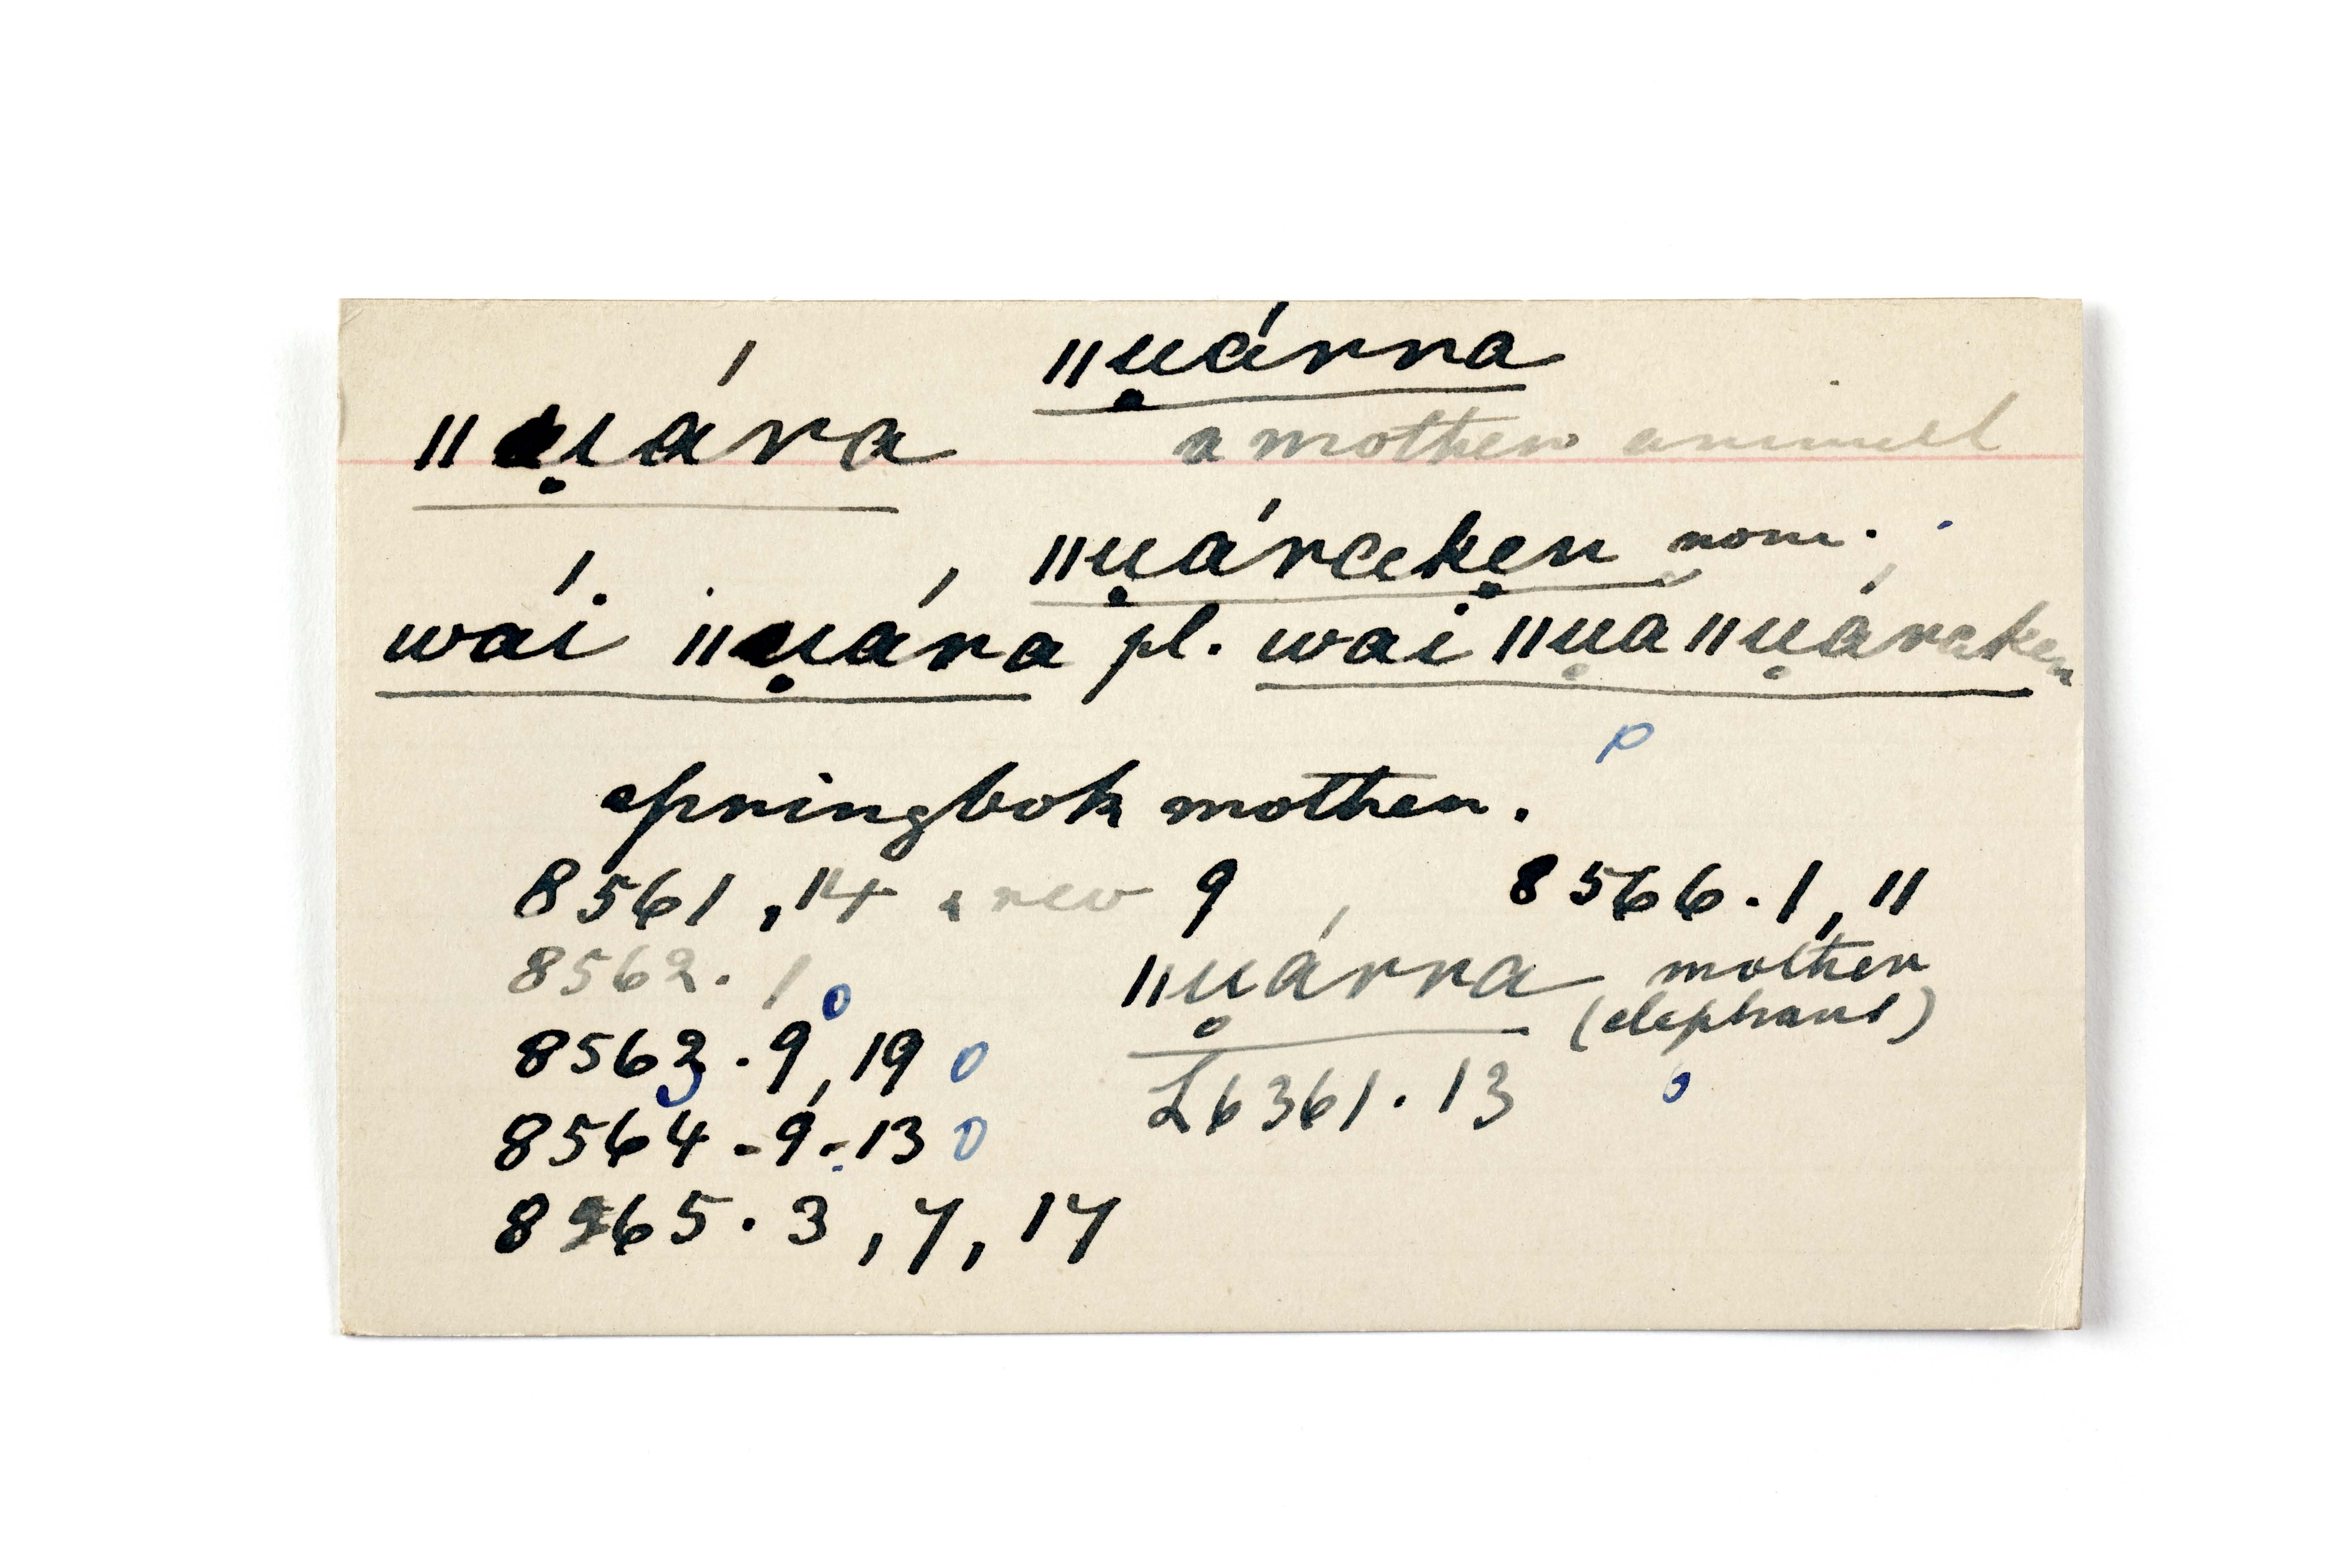 ǁu̥árra
ǁu̥ára a mother animal
ǁu̥árake̥n nom.
wái ǁu̥ára pl. wai ǁu̥aǁu̥áraken
springbok mother.
8561, 14 rev 9 8566. 1, 11
8562. 1 ǁu̥árra mother
(elephant)
8563. 9, 19
L6361. 13
8564 - 9. 13
8565. 3, 7, 17